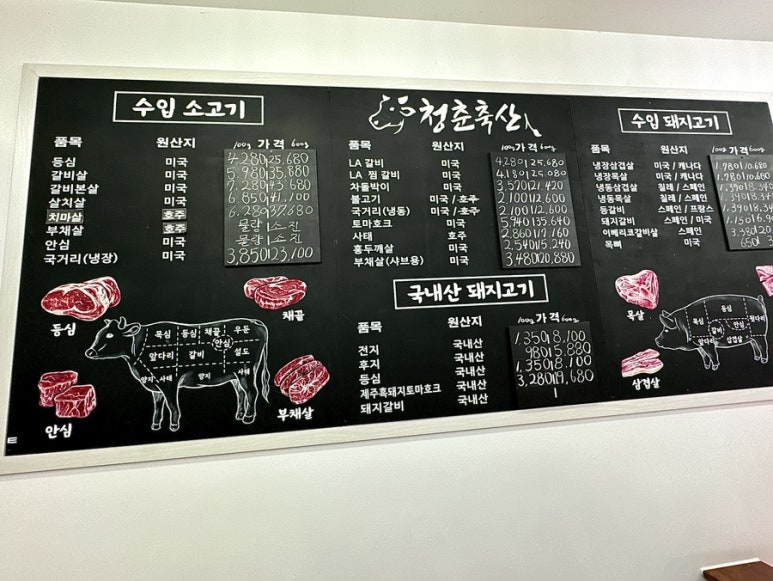 수입 소고기
품목 원산지 100g 가격 600g
등심 미국 4.280 25.680
갈비살 미국 5.980 35.880
갈비본살 미국 7.280 43.680
살치살 미국 6.850 41.100
치마살 호주 6.280 37.680
부채살 호주 물량 소진
안심 미국 물량 소진
국거리(냉장) 미국 3,850 23,100
등심
채끌
안심
부채살
목심 등심 채끝 우둔
안심
앞다리 갈비 설도
양지 사태 양지 사태
청춘축산
품목 원산지 100g 가격 600g
LA 갈비 미국 4.280 25.680
LA 찜 갈비 미국 4.180 25.080
차돌박이 미국 3,570 21,420
불고기 미국 / 호주 2,100 12,600
국거리(냉동) 미국 / 호주 2,100 12,600
토마호크 미국 5,940 35,640
사태 호주 2,860 17,160
홍두깨살 미국 2,540 15,240
부채살(샤브용) 미국 3,480 20,880
국내산 돼지고기
품목 원산지 100g 가격 600g
전지 국내산 1,350 8,100
후지 국내산 980 5,880
등심 국내산 1,350 8,100
제주흑돼지토마호크 국내산 3,280 19,680
돼지갈비 국내산
수입 돼지고기
품목 원산지 100g 가격
냉장삼겹살 미국 / 캐나다 1.780 10.680
냉장목살 미국 / 캐나다 1.780 10.680
냉동삼겹살 칠레 / 스페인
냉동목살 칠레 / 스페인
등갈비 스페인 / 프랑스
돼지갈비 스페인
이베리코갈비살 스페인
목뼈 미국 650
목살
삼겹살
등심
목심 안심 뒷다리
갈비
앞다리 삼겹살